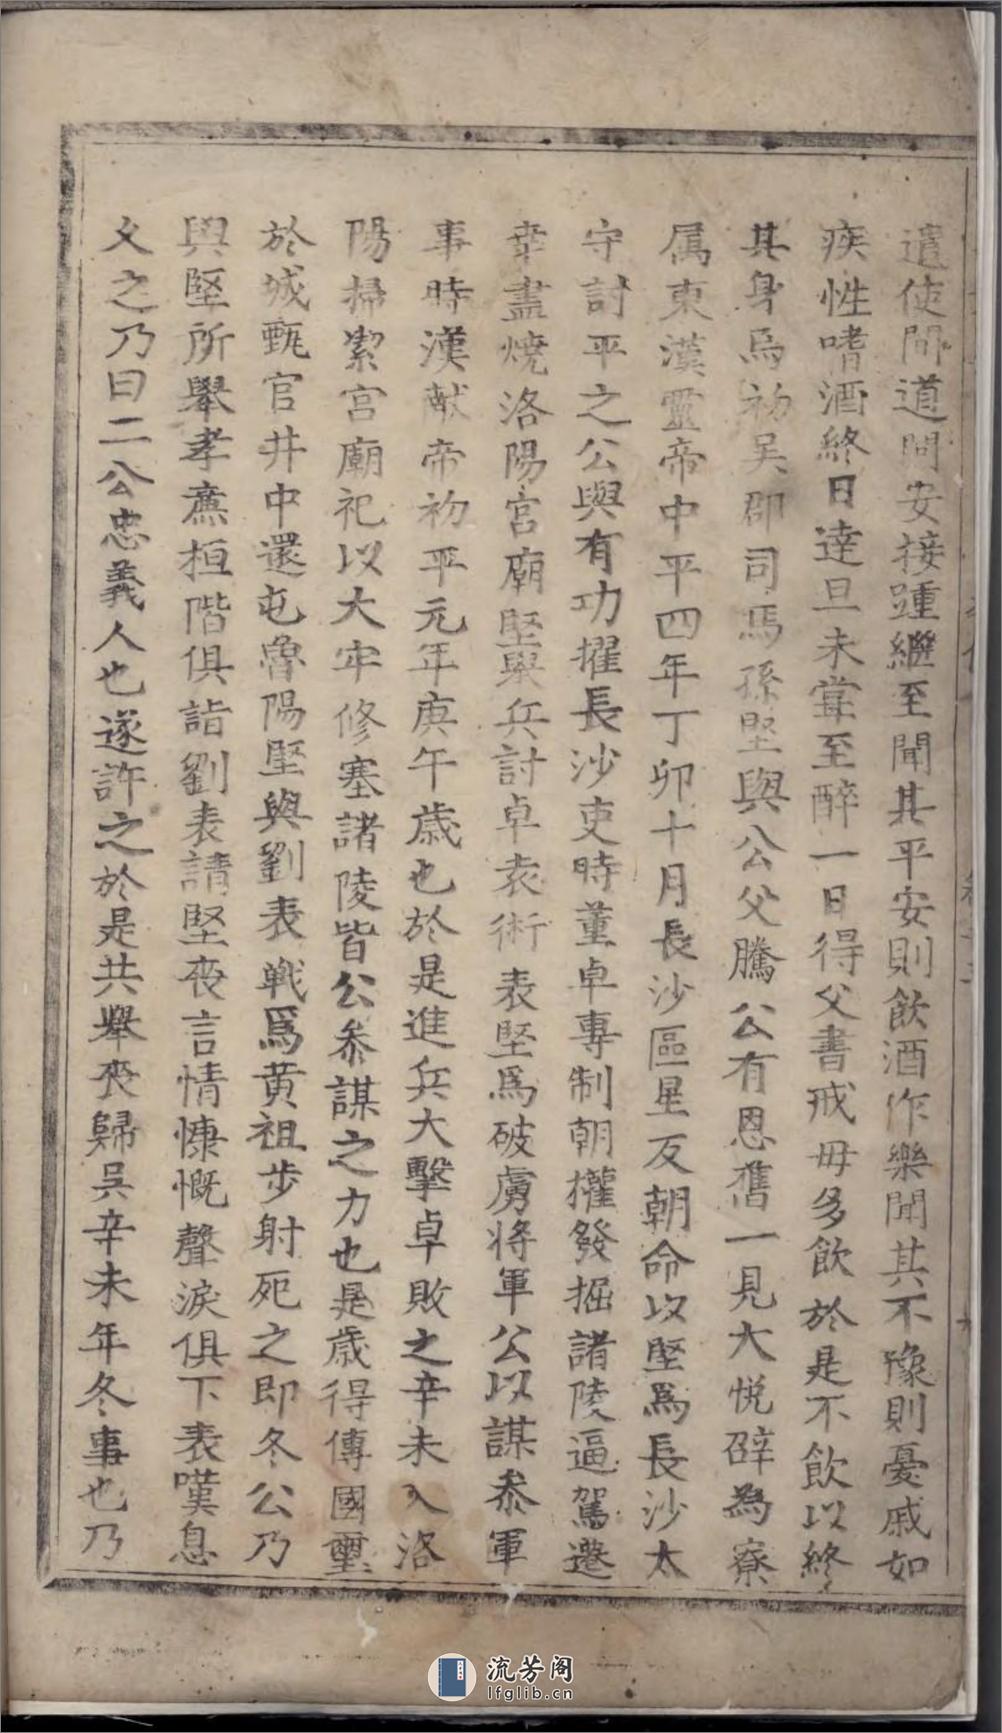 遣使間道問安接踵繼至聞其平安則飲酒作樂聞其不豫則憂戚如
疾性嗜酒終日達旦未嘗至醉一日得父書戒毋多飲於是不飲以終
其身焉初吳郡司馬孫堅與公父騰公有恩舊一見大悅辟為寮
属東漢靈帝中平四年丁卯十月長沙區星反朝命以堅爲長沙太
守討平之公與有功擢長沙吏時董卓專制朝權發掘諸陵逼駕遷
幸盡燒洛陽宮廟堅舉兵討卓袁術表堅爲破虜将軍公以謀叅軍
事時漢献帝初平元年庚午歲也於是進兵大擊卓敗之辛未入洛
陽掃絜宮廟祀以大牢修塞諸陵皆公叅謀之力也是歲得傳國璽
於城甄官井中還屯魯陽堅與劉表戰爲黄祖步射死之即冬公乃
與堅所舉孝亷桓階俱詣劉表請堅丧言情慷慨聲淚俱下表嘆息
久之乃曰二公忠義人也遂許之於是共舉丧歸吳辛未年冬事也乃
流芳阁
lfglib.cn